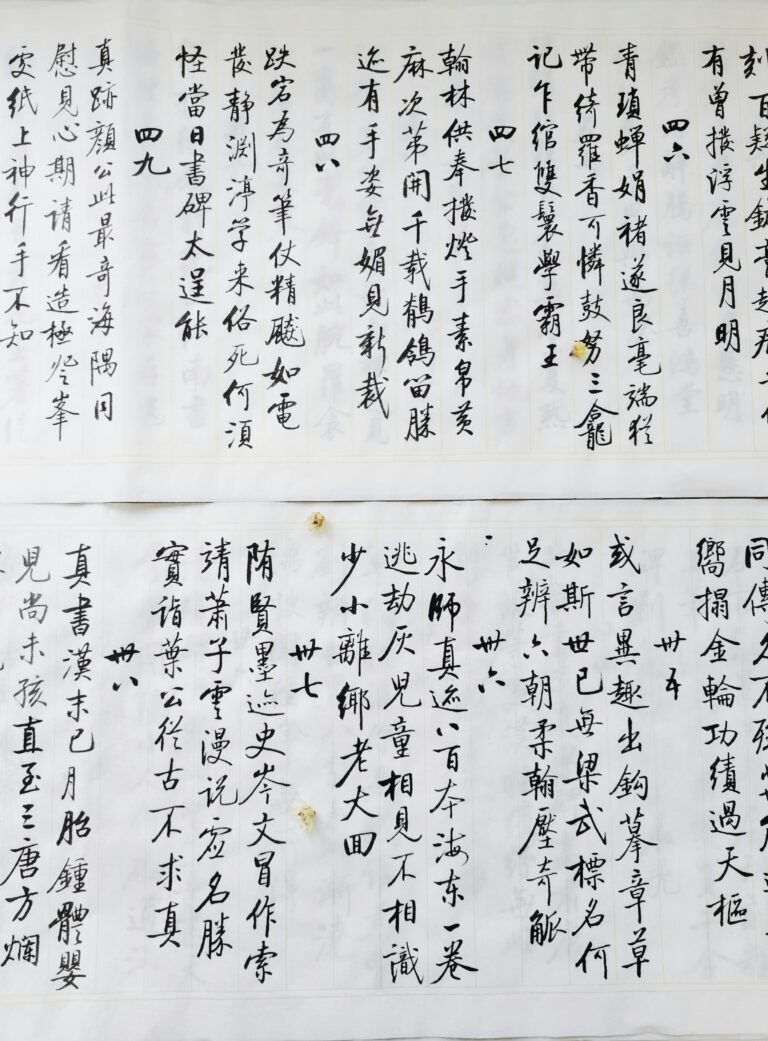 刻百疑生
有曾撥浮雲見月明
四六
青瑣蟬娟褚遂良毫端猶
帶綺羅香可憐鼓努三龕
記乍綰雙鬟學霸王
四七
翰林供奉撥燈手素帛黃
麻次第開千載鶺鴒留勝
迹有手姿無媚見新裁
四八
跌宕為奇筆仗精飈如電
發靜淵渟学来俗死何須
怪當日書碑太逞能
四九
真跡顏公此最奇海隅同
慰見心期請看造極登峯
處紙上神行手不知
同傳
嚮搨金輪功績過天樞
卅五
或言異趣出鈎摹章草
如斯世已無梁武標名何
足辨六朝柔翰壓奇觚
卅六
永師真迹八百本海東一卷
逃劫灰兒童相見不相識
少小離鄉老大回
卅七
隋賢墨迹史岑文冒作索
靖蕭子雲漫説虛名勝
實詣葉公從古不求真
卅八
真書漢末已月胎鍾體嬰
兒尚未孩直至三唐方爛